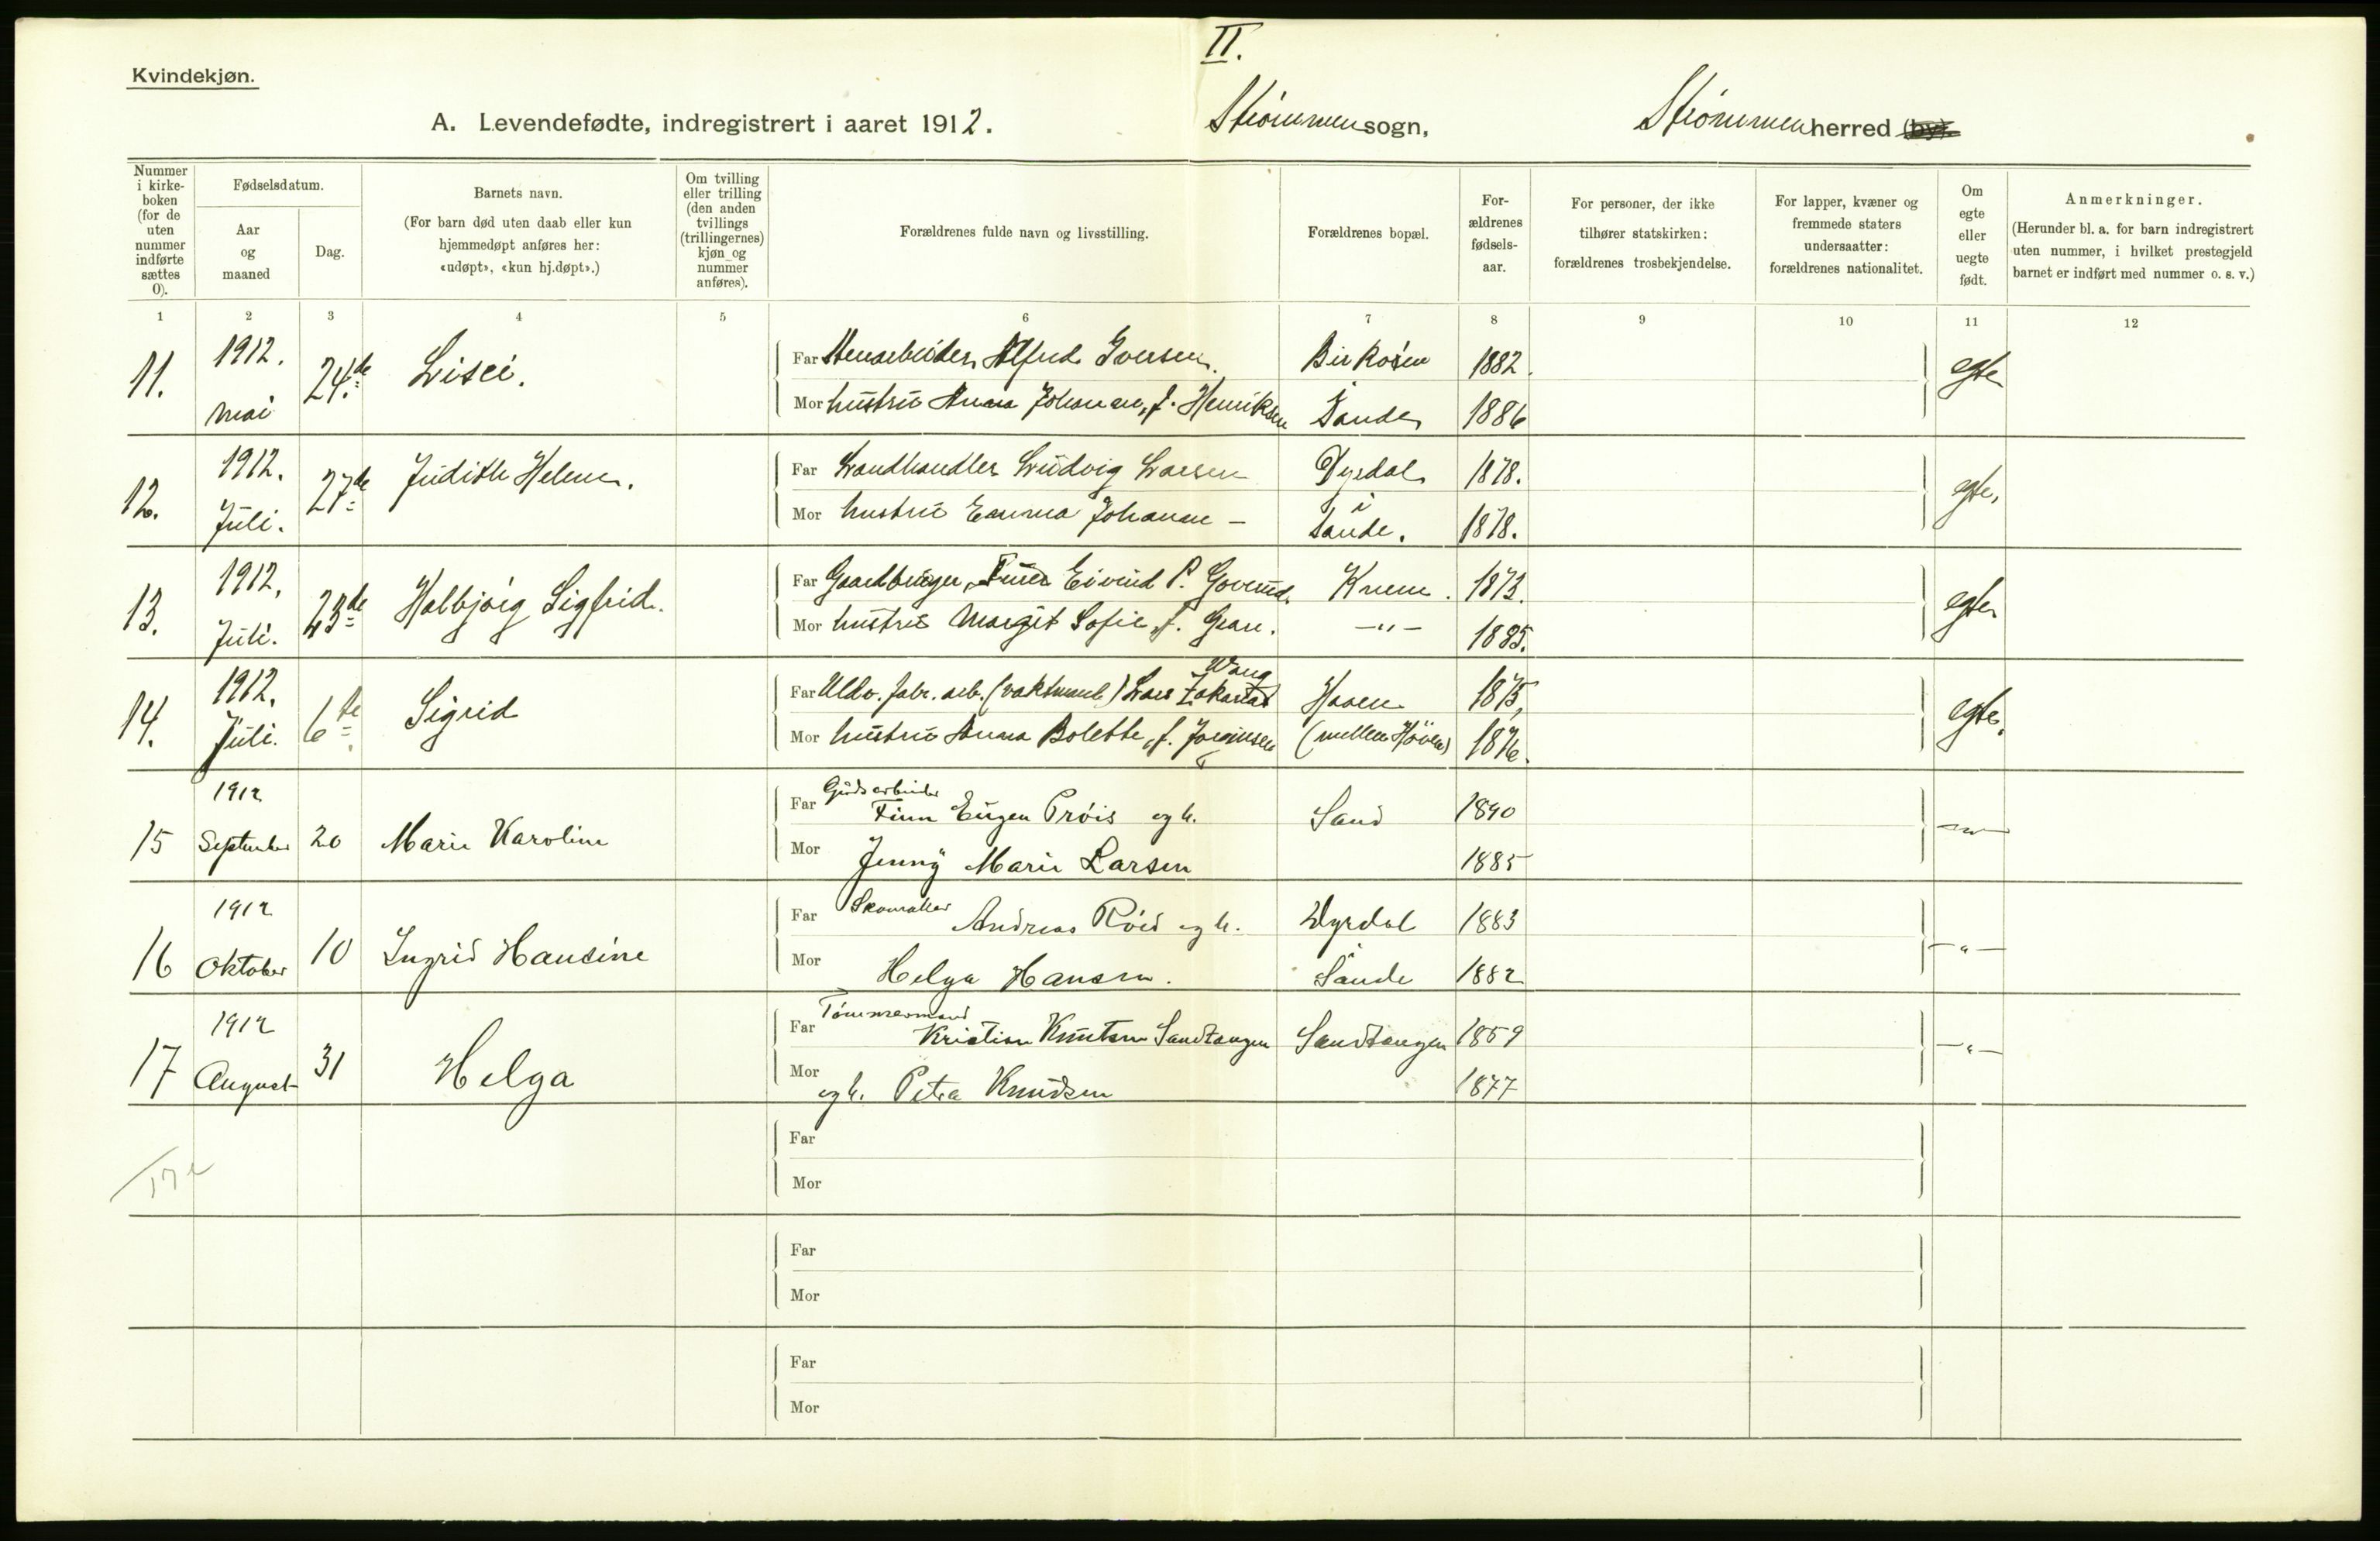 II.
Kvindekjøn.
A. Levendefødte, indregistrert i aaret 1912. Strömmen sogn, Strömmen herred (by).
Nummer i kirke-boken (for de uten nummer indførte sættes 0).
Fødselsdatum.
Aar og maaned
Dag.
Barnets navn.
(For barn død uten daab eller kun hjemmedøpt anføres her: «udøpt», «kun hj.døpt».)
Om tvilling eller trilling (den anden tvillings (trillingernes) kjøn og nummer anføres).
Forældrenes fulde navn og livsstilling.
Forældrenes bopæl.
For-ældrenes fødsels-aar.
For personer, der ikke tilhører statskirken: forældrenes trosbekjendelse.
For lapper, kvæner og fremmede staters undersaatter: forældrenes nationalitet.
Om egte eller uegte født.
Anmerkninger.
(Herunder bl. a. for barn indregistrert uten nummer, i hvilket prestegjeld barnet er indført med nummer o. s. v.)
1 2 3 4 5 6 7 8 9 10 11 12
11. 1912. Mai 24de Far Alfred Iversen. 1882. egte
Mor hustru Anna Johanne, f. Henriksen Sande 1886
12. 1912. Juli. 27de Judith Helene. Far Landhandler Ludvig Larsen Dyrdal 1878. egte,
Mor hustru Emma Johanne — i Sande. 1878.
13. 1912. Juli. 23de Halbjörg Sigfrid. Far Gaardbruger, Eivind P. 1873. egte
Mor hustru Margit Sofie, f. —"— 1885.
14. 1912. Juli. 6te Sigrid Far Uldv. fabr. arb. (vaktmand) Lars Zakarias Wang Haven 1875, egte,
Mor hustru Anna Bolette, f. Jörginsen (mellem Höven) 1876.
15 1912 September 20 Marie Karoline Far Godsarbeider Finn Eugen Pröis og h. Sand 1890 —"—
Mor Jenny Marie Larsen 1885
16 1912 Oktober 10 Ingrid Hansine Far Skomaker Andreas Röed og h. Dyrdal 1883 —"—
Mor Helga Hansen. Sande 1882
17 1912 August 31 Helga Far Tömmermand Kristian Knutsen Sandtangen Sandtangen 1859 —"—
Mor og h. Petra Knudsen 1877
Far
Mor
Far
Mor
Far
Mor